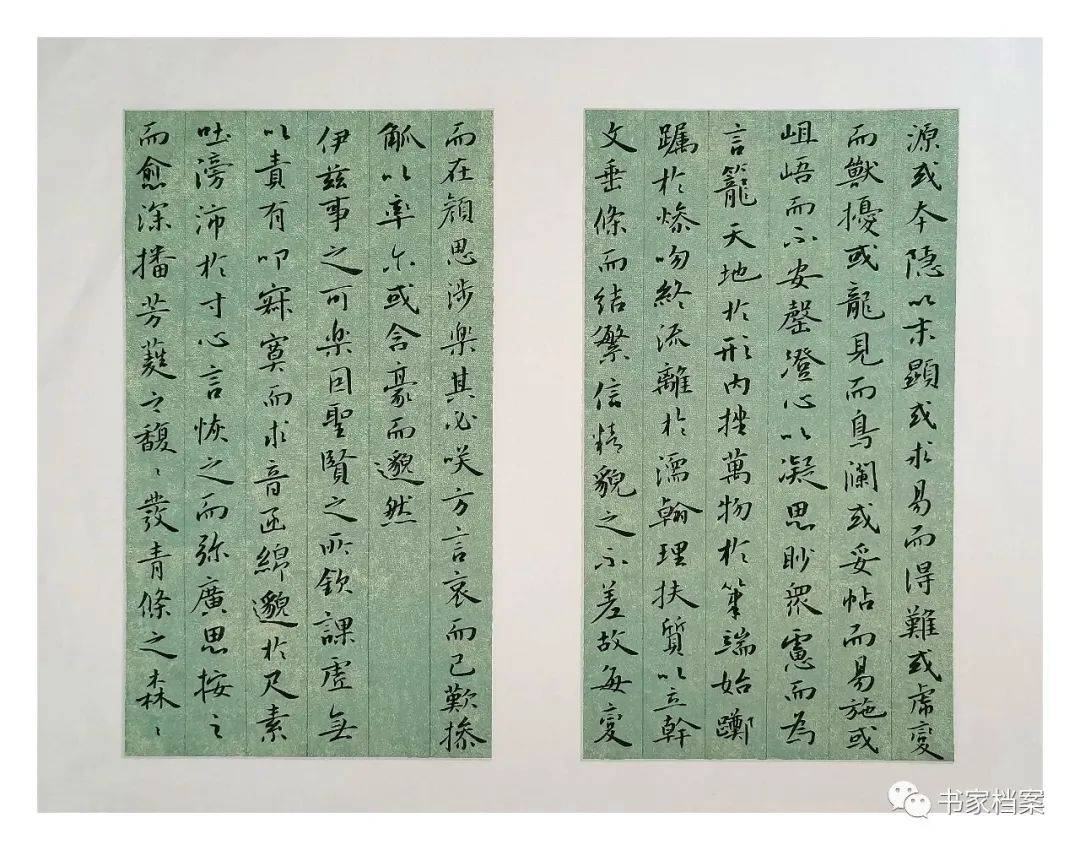 源或本隐以末顯或求易而得難或虎變
而獸擾或龍見而鳥瀾或妥帖而易施或
岨峿而不安罄澄心以凝思眇衆慮而為
言籠天地於形内挫萬物於筆端始躑
躅於燥吻終流離於濡翰理扶質以立幹
文垂條而結繁信情貌之不差故每變
而在顔思涉楽其必咲方言哀而已歎操
觚以率尔或含豪而邈然
伊兹事之可楽固聖賢之所欽課虚無
以責有叩寂寞而求音函綿邈於尺素
吐滂沛於寸心言恢之而弥廣思按之
而愈深播芳蕤之馥〻發青條之森〻
书家档案